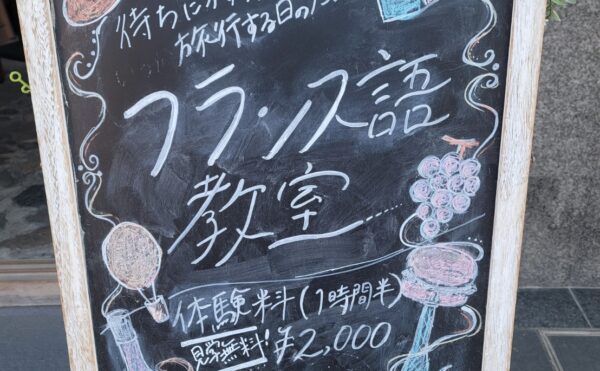 待ちに
旅行する日の
フランス語
教室
体験料(1時間半)
見学無料! ¥2,000